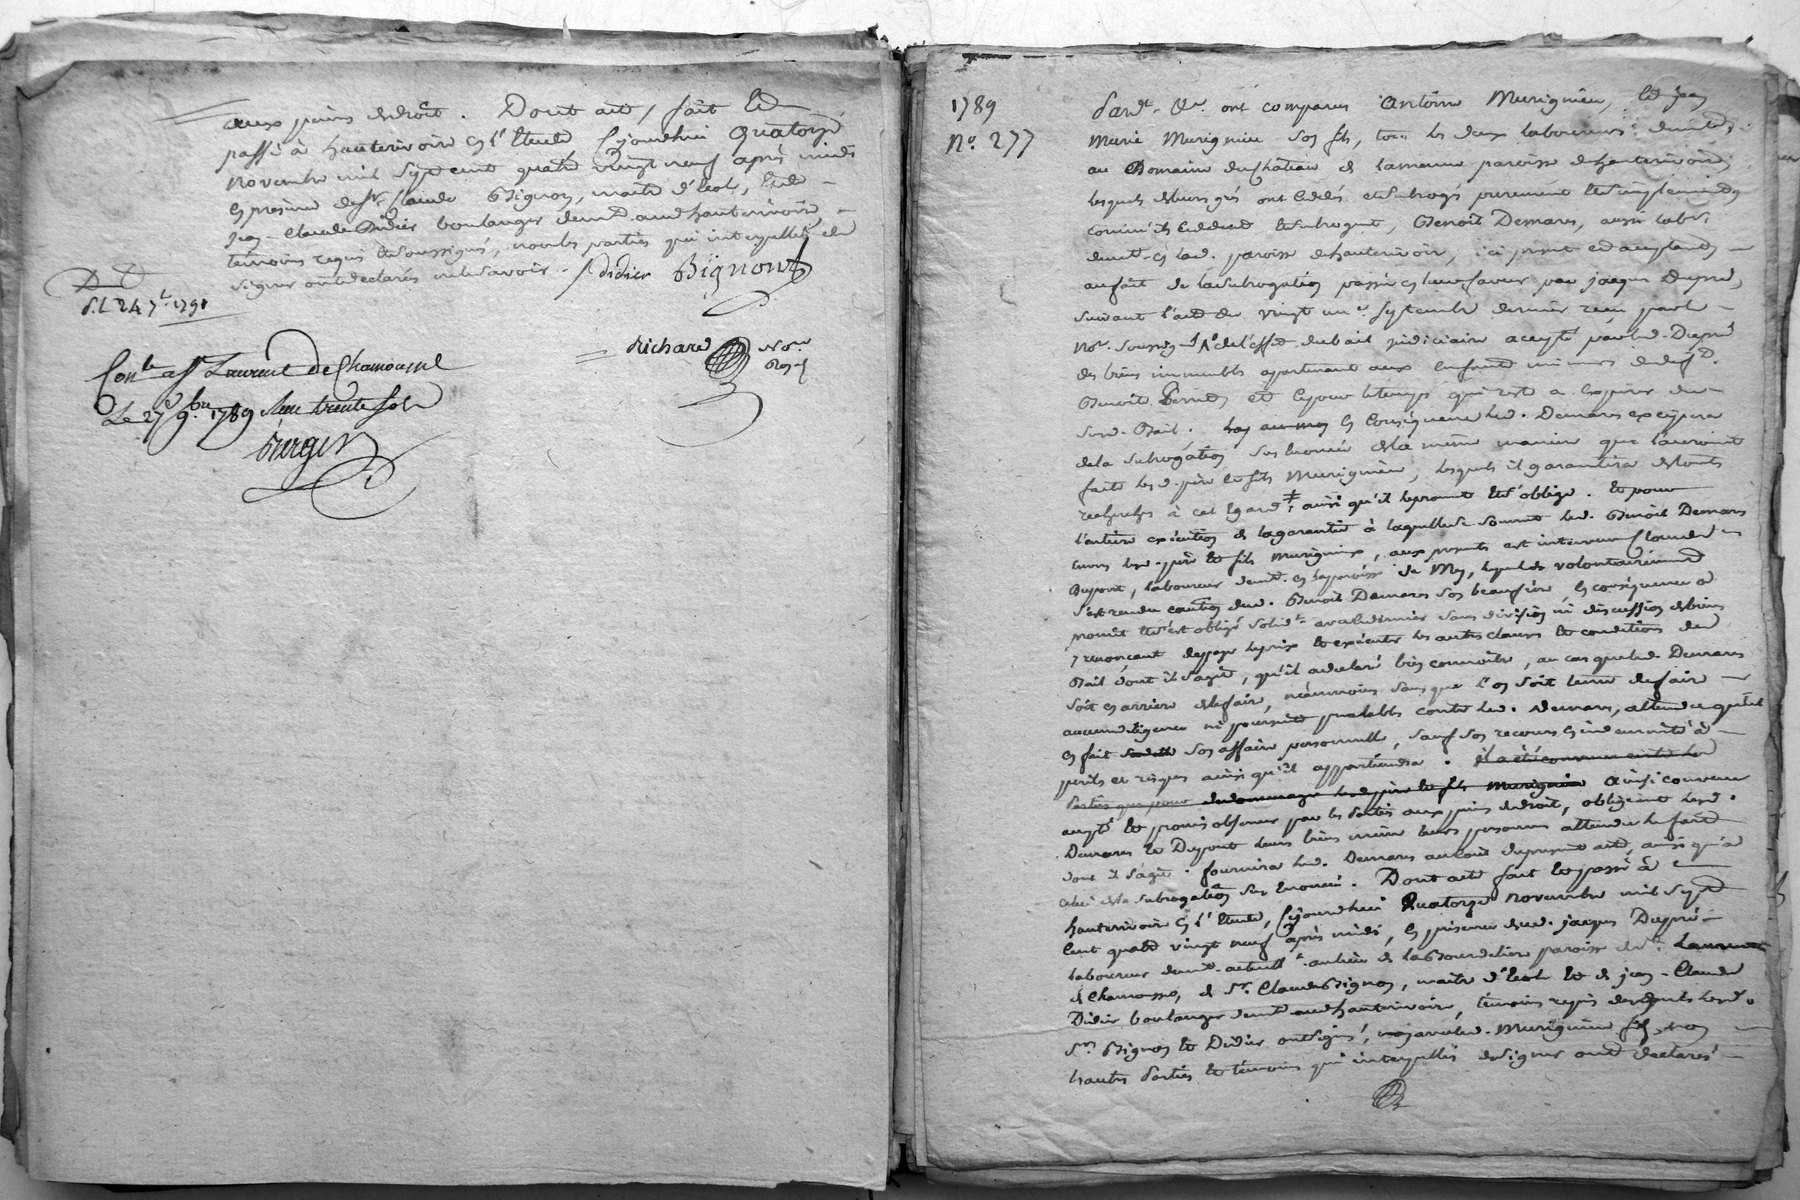 aux peines de droit. Dont acte, fait Et
passé à hauterivoire En l'Etude Cejourdhui Quatorze
novembre mil Sept cent quatre vingt neuf après midi
En présence de Sr. Claude Bignon, maitre d'Ecole, Et de
jean-Claude Didier boulanger demt. aud. hauterivoire,
témoins requis Et Soussignés, non les parties qui interpellées de
Signer ont déclarés ne le Savoir.
Didier Bignont
D. D.
d. l. 24 7bre. 1791
Richard Nore
Royal
Conlé a St Laurent de Chamousset
Le 27 9bre 1789 Reçu trente sols
Berger
1789
No. 277
Pardt. &a. ont comparus Antoine Murigneu, Et jean
Marie Murigneu Son fils, tous les deux laboureurs demts.
au Domaine du Chateau de la meme paroisse d'hauterivoire,
lesquels de leurs grés ont Cédés et Subrogés purement Et Simplement
comm'ils Cedent Et Subrogent, Benoit Demares, aussi labr.
demt. En lad. paroisse d'hauterivoire, ici présent et acceptant
au fait de la Subrogation passée En leur faveur par jacques Dupré,
Suivant l'acte du vingt un Septembre dernier reçu par le
Nore. Soussigné, de l'effet du bail judiciaire accepté par led. Dupré
des biens immeubles appartenant aux Enfants mineurs de deft.
Benoit et Ce pour le temps qui reste a Expirer du
Susd. Bail. En Conséquence led. Demares excipera
de la Subrogation Sus Enoncée de la même manière que l'auroient
faits lesd. père Et fils Murigneu, lesquels il garantira de toutes
recherches à cet Egard, ainsi qu'il le promet Et S'oblige. Et pour
l'entière exécution de la garantie à laquelle Se Soumet led. Benoit Demares
Envers lesd. père Et fils Murigneu, aux présentes est intervenu Claude
Dupont, laboureur demt. En la paroisse de Mey, lequel de volontairement
S'est rendu caution dud. Benoit Demares Son beaufrère, En conséquence a
promis Et S'est obligé Solidt. avec ce dernier Sans division ni discussion de biens
y renonçant de payer le prix Et exécuter les autres clauses Et conditions du
Bail dont il S'agit, qu'il a déclaré bien connoitre, au cas que led. Demares
Soit En arriere de le faire, néanmoins Sans que l'on Soit tenu de faire
aucune diligence ni poursuite préalable contre led. Demares, attendu qu'il
En fait Son affaire personnelle, Sauf Son recours En indemnité à
perils et risques ainsi qu'il appartiendra. il a été convenu entre les
Parties que pour dedommager lesd. père Et fils Murigneu Ainsi convenu
accepté Et promis observer par les Parties aux peines de droit, obligeant lesd.
Demares Et Dupont leurs biens même leurs personnes attendu le fait
dont il S'agit. fournira led. Demares au coût du present acte, ainsi qu'à
celui de la Subrogation Sus Enoncée. Dont acte fait Et passé à
hauterivoire En l'Etude, Cejourdhui Quatorze novembre mil Sept
Cent quatre vingt neuf après midi, En présence dud. jacques Dupré
laboureur demt. actuellt. au lieu de la Bourdeliere paroisse de St. Laurent
de Chamousset, de Sr. Claude Bignon, maitre d'Ecole Et de jean-Claude
Didier boulanger demt. aud. hauterivoire, témoins requis desquels lesd.
Srs. Bignon Et Didier ont Signé, non
Parties Et témoins qui interpellés de Signer ont déclarés